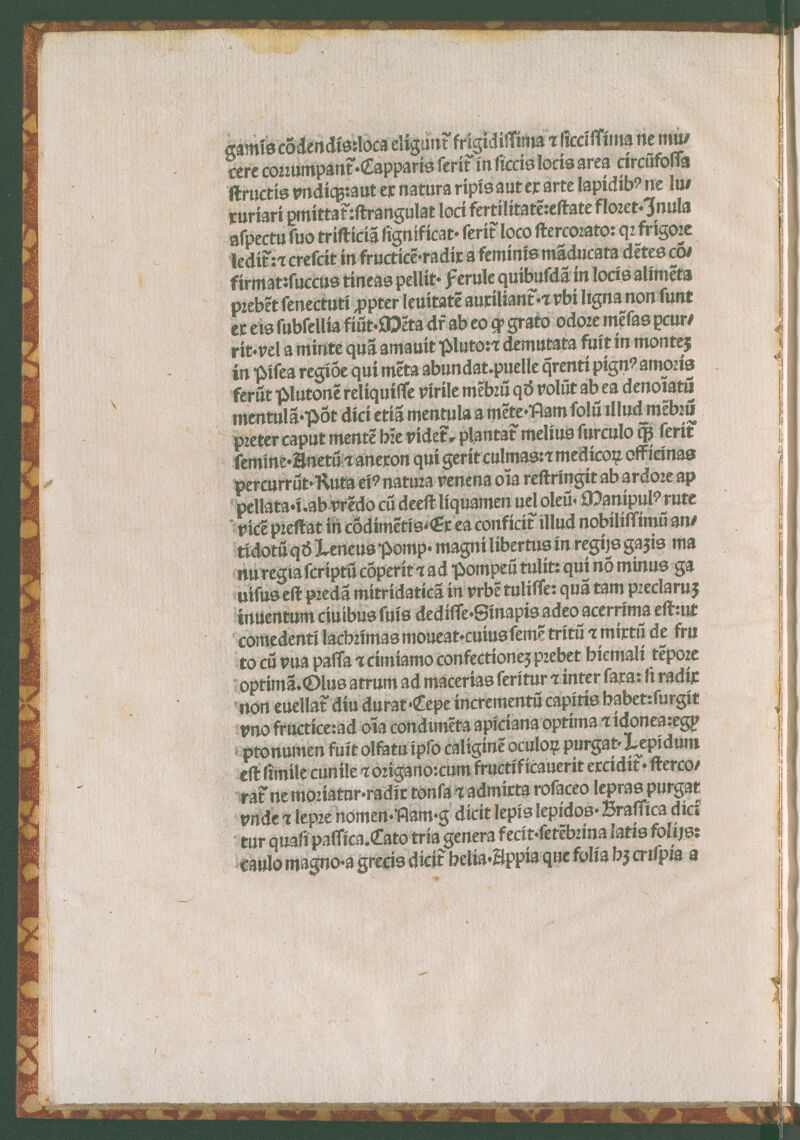 gamis cõdendis:loca eligunt᷑ frigidiſſima ⁊ ſicciſſima ne mu/
cere corrumpant᷑.Capparis ſerit᷑ in ſiccis locis area circũfoſſa
ſtructis vndiqꝫ:aut ex natura ripis aut ex arte lapidibꝰ ne lu/
xuriari ꝑmittat᷑:ſtrangulat loci fertilitatẽ:eſtate floret.Inula
aſpectu ſuo triſticiã ſignificat. ſerit᷑ loco ſtercorato: qꝛ frigore
ledit᷑:⁊ creſcit in fructicẽ.radix a feminis mãducata dẽtes cõ/
firmat:ſuccus tineas pellit. Ferule quibuſdã in locis alimẽta
prebẽt ſenectuti ꝓpter leuitatẽ auxiliant᷑.⁊ vbi ligna non ſunt
ex eis ſubſellia fiũt.Mẽta dr̃ ab eo ꝙ grato odore mẽſas ꝑcur/
rit.vel a minte quã amauit Pluto:⁊ demutata fuit in monteꝫ
in Piſea regiõe qui mẽta abundat.puelle q̃renti pignꝰ amoris
ferũt Plutonẽ reliquiſſe virile mẽbrũ qð volũt ab ea denoĩatũ
mentulã.Põt dici etiã mentula a mẽte.Nam ſolũ illud mẽbrũ
preter caput mentẽ hr̃e videt᷑. plantat᷑ melius ſurculo qꝫ̃ ſerit᷑
ſemine.Anetũ ⁊ anexon qui gerit culmas:⁊ medicoꝝ officinas
percurrũt.Ruta eiꝰ natura venena oĩa reſtringit ab ardore ap
pellata.i.ab vrẽdo cũ deeſt liquamen uel oleũ. Manipulꝰ rute
vicẽ preſtat in cõdimẽtis.Ex ea conficit᷑ illud nobiliſſimũ an/
tidotũ qð Leneus Pomp. magni libertus in regijs gazis ma
nu regia ſcriptũ cõperit ⁊ ad Pompeũ tulit: qui nõ minus ga
uiſus eſt predã mitridaticã in vrbẽ tuliſſe: quã tam preclaruꝫ
inuentum ciuibus ſuis dediſſe.Sinapis adeo acerrima eſt:ut
comedenti lachrimas moueat.cuius ſemẽ tritũ ⁊ mixtũ de fru
to cũ vua paſſa ⁊ cimiamo confectioneꝫ prebet hiemali tẽpore
optimã.Olus atrum ad macerias ſeritur ⁊ inter ſaxa: ſi radix
non euellat᷑ diu durat.Cepe incrementũ capitis habet:ſurgit
vno fructice:ad oĩa condimẽta apiciana optima ⁊ idonea:egy
pto numen fuit olfatu ipſo caliginẽ oculoꝝ purgat.Lepidum
eſt ſimile cunile ⁊ origano:cum fructificauerit excidit᷑. ſterco/
rat᷑ ne moriatur.radix tonſa ⁊ admixta roſaceo lepras purgat
vnde ⁊ lepre nomen.Nam.g dicit lepis lepidos. Braſſica dici
tur quaſi paſſica.Cato tria genera fecit.ſetẽbrina latis folijs:
caulo magno.a grecis dicit᷑ helia.Appia que folia hꝫ criſpia a